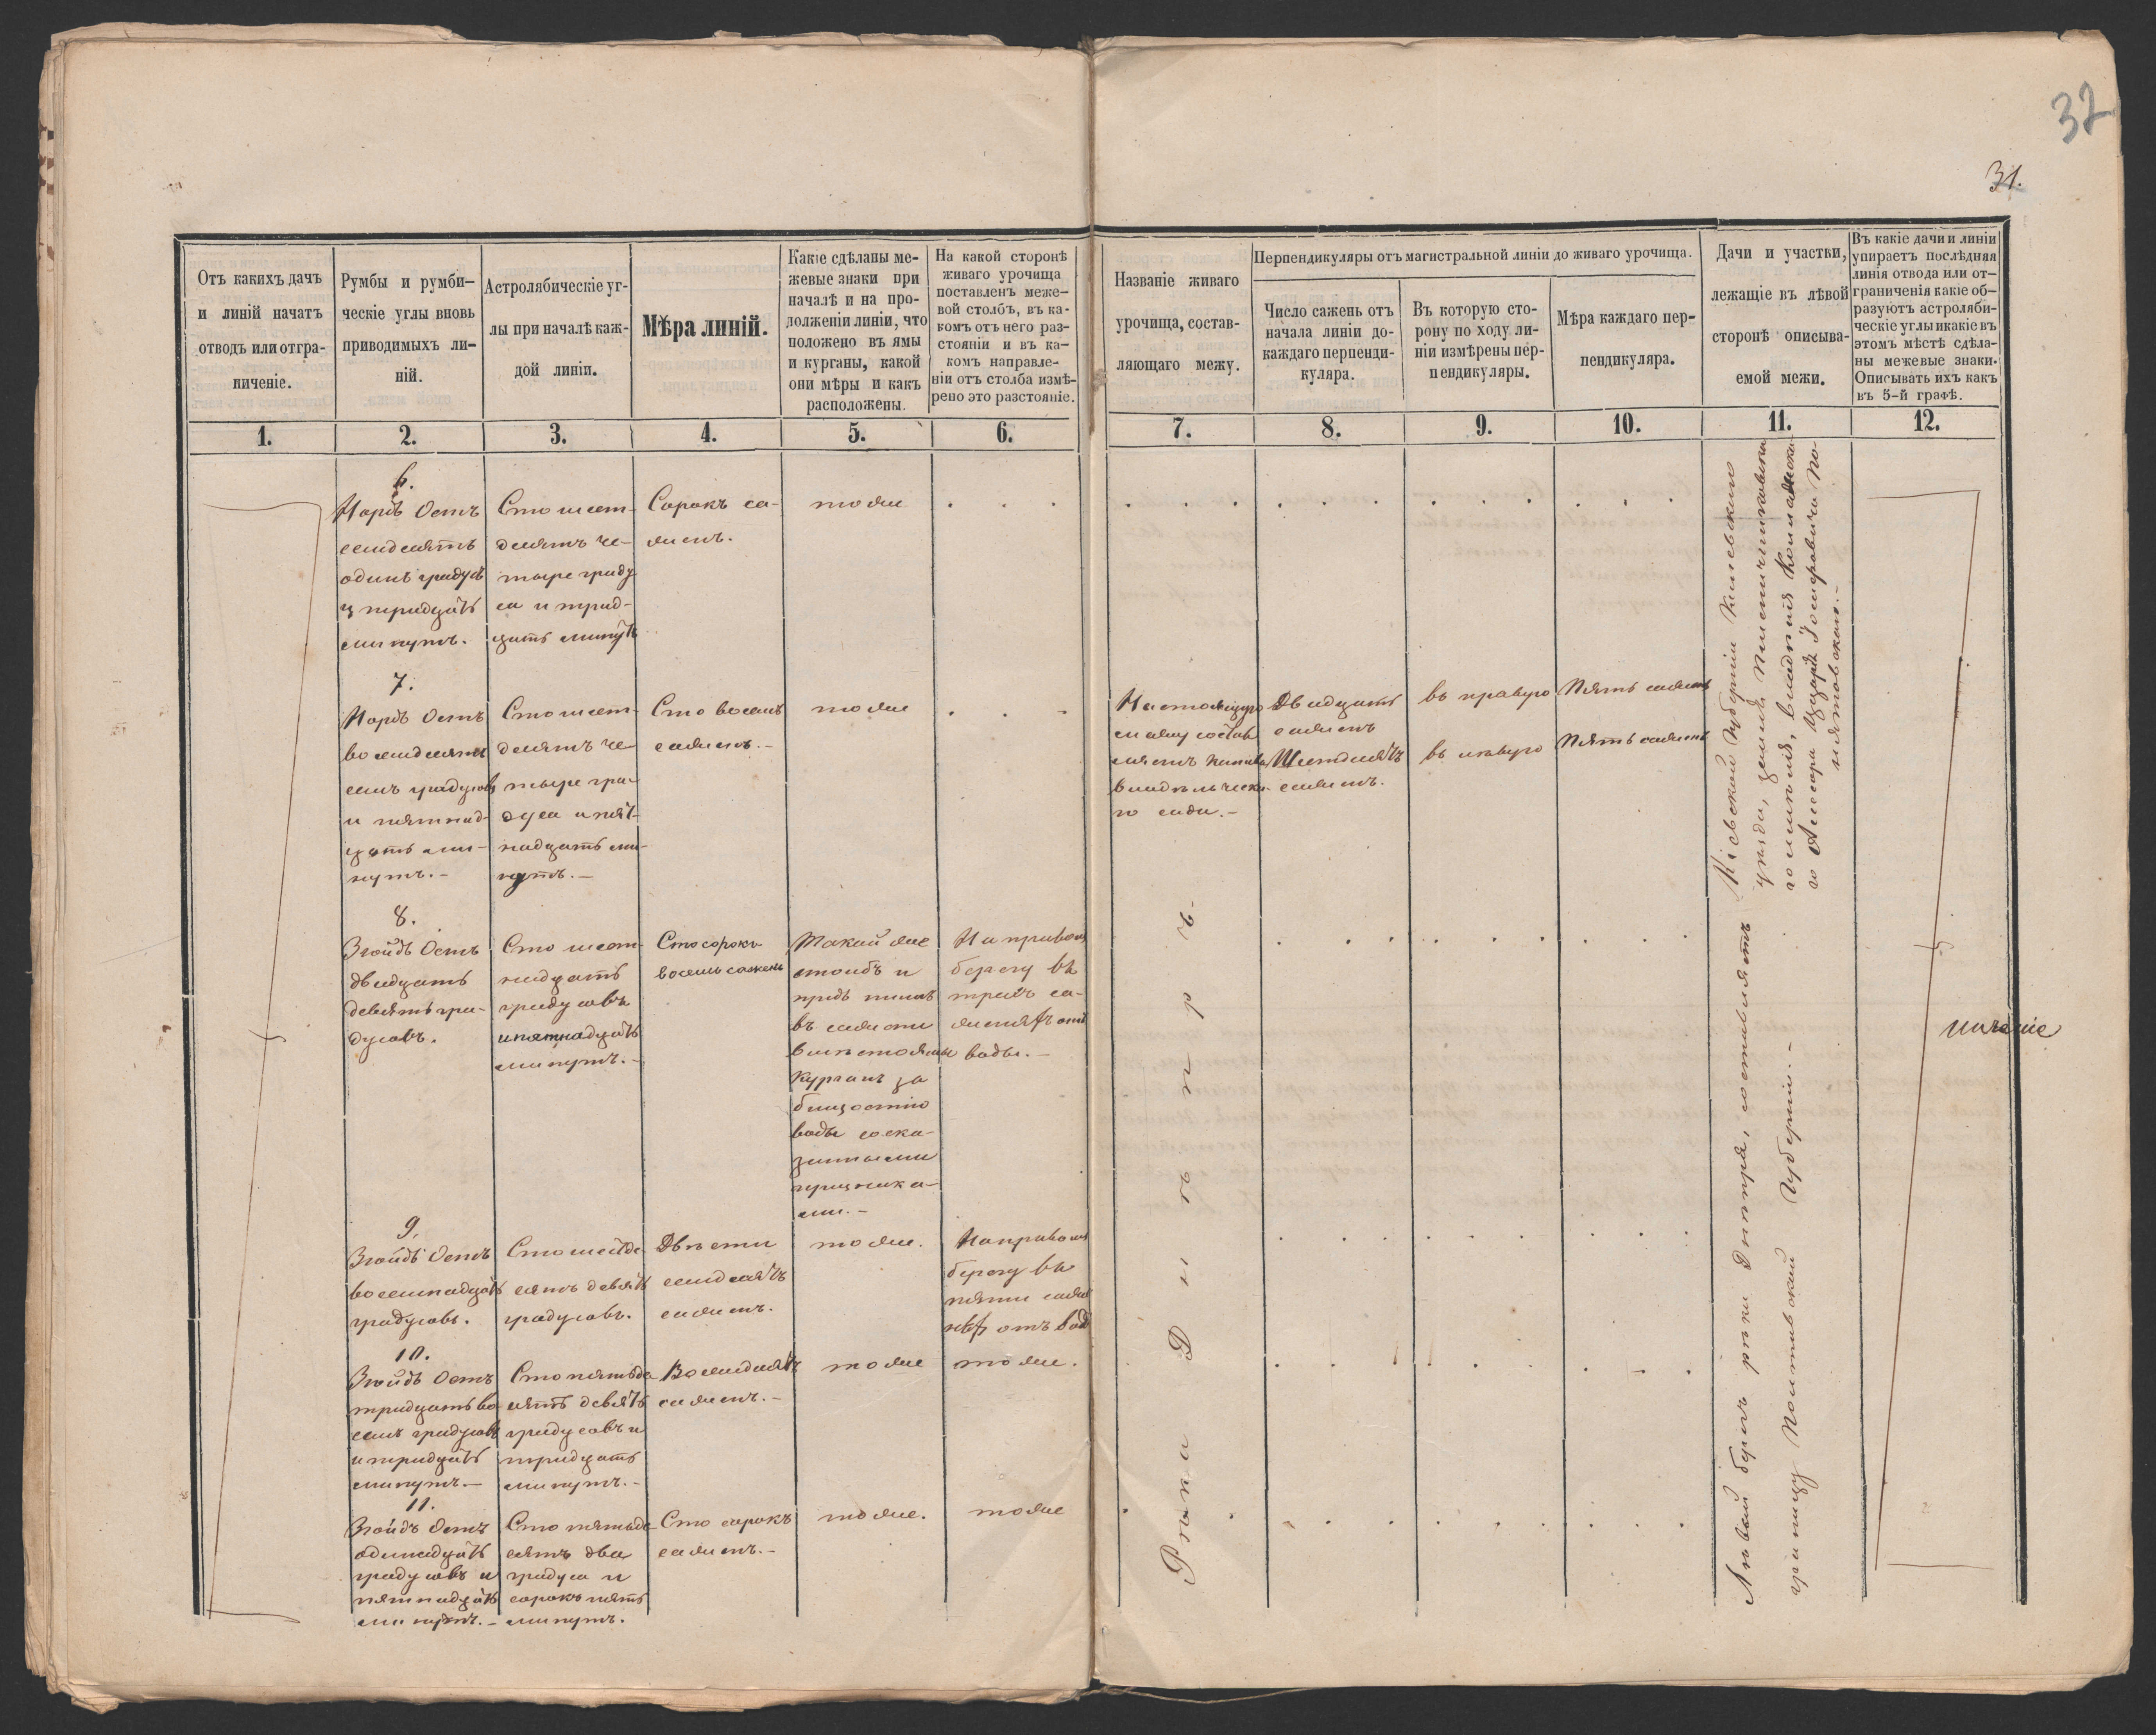 32
31.
Отъ какихъ дачъ
и линій начатъ
отводъ или отгра-
ниченіе.
Румбы и румби-
ческіе углы вновь
приводимыхъ ли-
ній.
Астролябическіе уг-
лы при началѣ каж-
дой линіи.
Мѣра линій.
Какіе сдѣланы ме-
жевые знаки при
началѣ и на про-
долженіи линіи, что
положено въ ямы
и курганы, какой
они мѣры и какъ
расположены.
На какой сторонѣ
живаго урочища
поставленъ меже-
вой столбъ, въ ка-
комъ отъ него раз-
стояніи и въ ка-
комъ направле-
ніи отъ столба измѣ-
рено это разстояніе.
Названіе живаго
урочища, состав-
ляющаго межу.
Перпендикуляры отъ магистральной линіи до живаго урочища.
Число сажень отъ
начала линіи до-
каждаго перпенди-
куляра.
Въ которую сто-
рону по ходу ли-
ніи измѣрены пер-
пендикуляры.
Мѣра каждаго пер-
пендикуляра.
Дачи и участки,
лежащіе въ лѣвой
сторонѣ описыва-
емой межи.
Въ какіе дачи и линіи
упираетъ послѣдняя
линія отвода или от-
граниченія какіе об-
разуютъ астроляби-
ческіе углы и какіе въ
этомъ мѣстѣ сдѣла-
ны межевые знаки.
Описывать ихъ какъ
въ 5-й графѣ.
1. 2. 3. 4. 5. 6. 7. 8. 9. 10. 11. 12.
6.
Нордъ Остъ
семдесятъ
одинъ градусъ
и тридцать
минутъ.
Сто шест-
десятъ че-
тыре граду
са и трид-
цать минутъ
Сорокъ са-
женъ.
тоже
7.
Нордъ Остъ
восемдесятъ
семъ градусовъ
и пятнад-
цать ми-
нутъ.-
Сто шест-
десятъ че-
тыре гра-
дуса и пят-
надцать ми-
нутъ.-
Сто восемъ
саженъ.-
тоже
Настоящую
межу состав
ляетъ канава
владѣльческа-
го сада.-
Двадцать
саженъ
Шестдесятъ
саженъ.
въ правую
въ лѣвую
Пять саженъ
Пять саженъ
8.
Зюйдъ Остъ
двадцать
девять гра-
дусовъ.
Сто шест-
надцать
градусовъ
и пятнадцать
минутъ.-
Сто сорокъ
восемь сажень
Такой же
столбъ и
предъ нимъ
въ сажени
вмѣсто ямы
курганъ за
близостію
воды со ска-
занными
признака-
ми.-
На правомъ
берегу въ
трехъ са-
женяхъ отъ
воды.-
9.
Зюйдъ Остъ
восемнадцать
градусовъ.
Сто шестьде
сятъ девять
градусовъ.
Двѣсти
семдесятъ
саженъ.
тоже.
На правомъ
берегу въ
пяти саже
няхъ отъ воды
10.
Зюйдъ Остъ
тридцать во
семъ градусовъ
и тридцать
минутъ.-
Сто пятьде-
сятъ девять
градусовъ и
тридцать
минутъ.-
Восемдесятъ
саженъ.-
тоже
тоже.
11.
Зюйдъ Остъ
одинадцать
градусовъ и
пятнадцать
минутъ.-
Сто пятьде-
сятъ два
градуса и
сорокъ пять
минутъ.
Сто сорокъ
саженъ.-
тоже.
тоже
Рѣка Днѣпръ-
Кіевской Губерніи Кіевскаго
уѣзда, земля
го имѣнія, владѣнія
го Ассесора Цезаря Іосифовича По-
нятовскаго.-
Лѣвый берегъ рѣки Днѣпра, составляетъ
границу Полтавской Губерніи.-